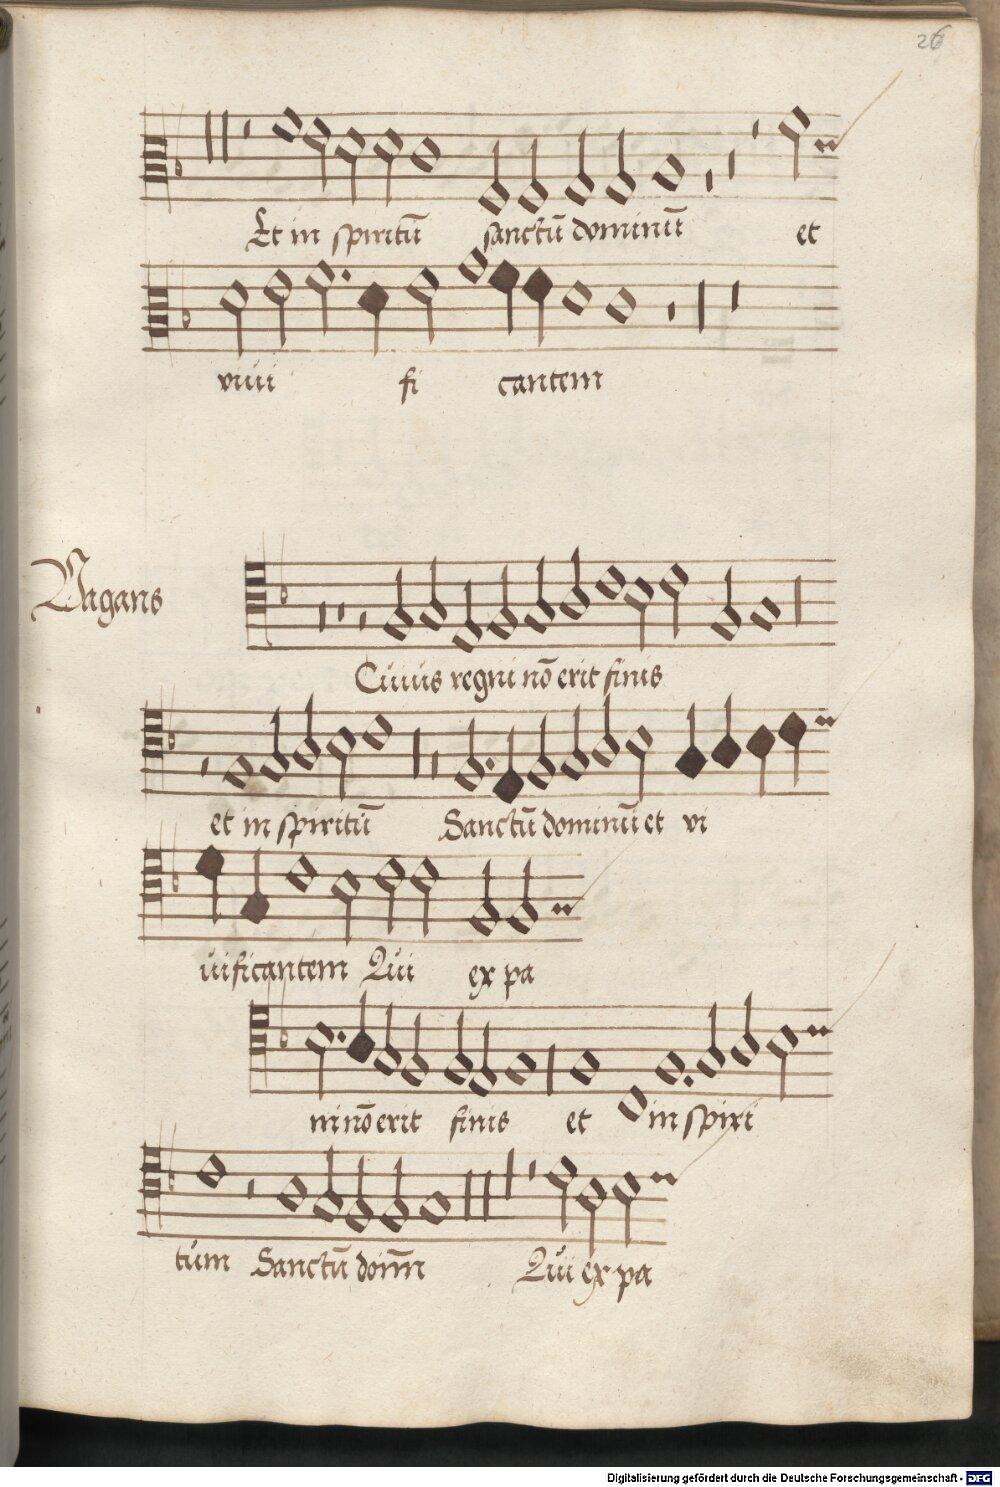 26
Et in spiritū sanctū dominūm et
viuifi cantem
Vagans
Cuius regni nō erit finis
et in spiritū Sanctū dominū et vi
uificantem Qui ex pa
ni nō erit finis et in spiri
tum Sanctū doīm Qui ex pa
Digitalisierung gefördert durch die Deutsche Forschungsgemeinschaft - DFG